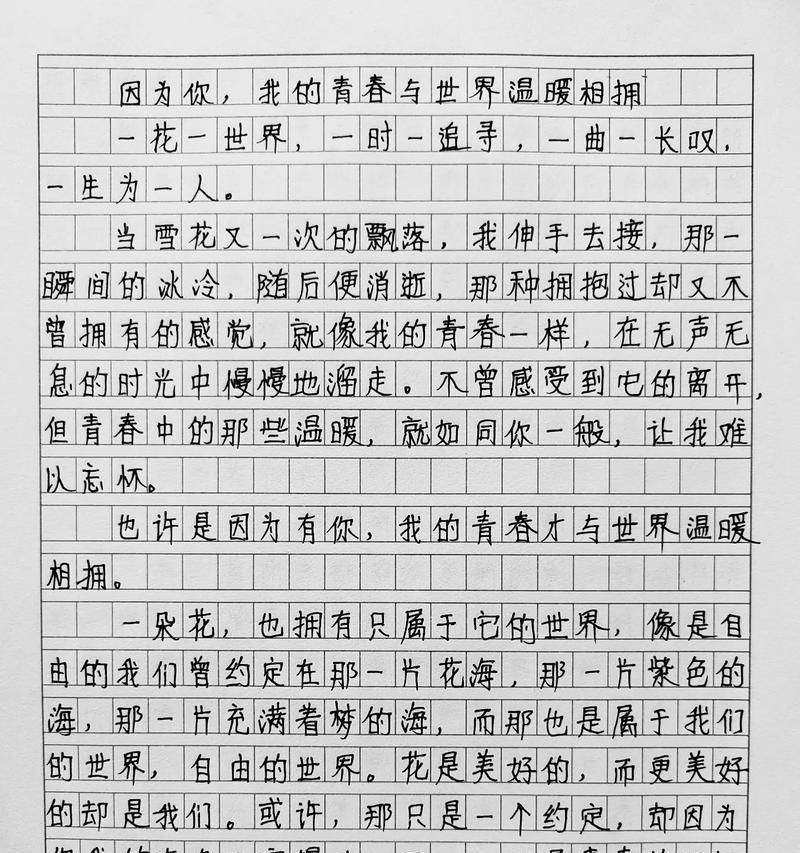 因为你，我的青春与世界温暖相拥
一花一世界，一时一追寻，一曲一长叹，
一生为一人。
当雪花又一次的飘落，我伸手去接，那一
瞬间的冰冷，随后便消逝，那种拥抱过却又不
曾拥有的感觉，就像我的青春一样，在无声无
息的时光中慢慢地溜走。不曾感受到它的离开，
但青春中的那些温暖，就如同你一般，让我难
以忘怀。
也许是因为有你，我的青春才与世界温暖
相拥。
一朵花，也拥有只属于它的世界，像是自
由的我们曾约定在那一片花海，那一片紫色的
海，那一片充满着梦的海，而那也是属于我们
的世界，自由的世界。花是美好的，而更美好
的却是我们。或许，那只是一个约定，却因为